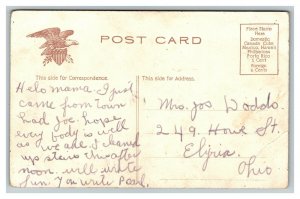 POST CARD
Place Stamp
Here
Domestic
Canada, Cuba
Mexico, Hawaii
Philippines
Porto Rico
1 Cent
Foreign
2 Cents
This side for Correspondence.
This side for Address.
Helo mama. I just
came from town
had Joe. hope
every body is well
as we are I cleaned
up stairs this after
noon. will write
fun. You write Pearl.
Mrs. Jos Dodds.
249. Howe St.
Elyria.
Ohio